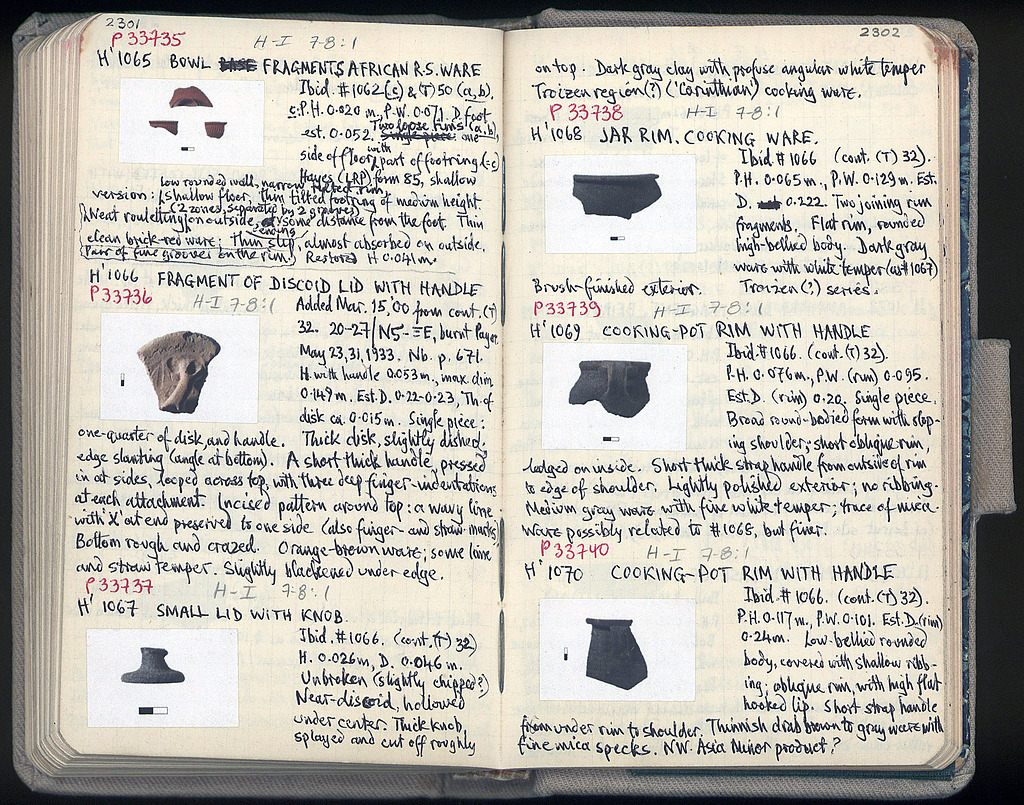 2301
P 33735
H-I 7-8:1
H' 1065 BOWL FRAGMENTS AFRICAN R.S. WARE
Ibid. #1062 (c) & (T) 50 (a, b).
c: P.H. 0.020 m, P.W. 0.071. D. foot
est. 0.052. Two loose rims (a, b), one
side of floor with part of footring (c)
Hayes (LRP) form 85, shallow
low rounded wall, narrow fluted rim
version: shallow floor, thin tilted footring of medium height
(2 zones, separated by 2 grooves)
Neat rouletting on outside, some distance from the foot. Thin
clean brick-red ware; thin slip, almost absorbed on outside.
Pair of fine grooves on the rim. Restored H 0.041 m.
H' 1066 FRAGMENT OF DISCOID LID WITH HANDLE
P33736
H-I 7-8:1
Added Mar. 15, 00 from cont. (T)
32. 20-27/ΝΣ-ΞΕ, burnt layer
May 23, 31, 1933. Nb. p. 671.
H. with handle 0.053 m., max. dim
0.149 m. Est. D. 0.22-0.23, Th. of
disk ca. 0.015 m. Single piece:
one-quarter of disk, and handle. Thick disk, slightly dished,
edge slanting (angle at bottom). A short thick handle, pressed
in at sides, looped across top, with three deep finger-indentations
at each attachment. Incised pattern around top: a wavy line
with 'X' at end preserved to one side (also finger- and straw-marks)
Bottom rough and crazed. Orange-brown ware; some lime
and straw temper. Slightly blackened under edge.
P33737
H-I 7-8:1
H' 1067 SMALL LID WITH KNOB.
Ibid. #1066. (cont. (T) 32)
H. 0.026 m, D. 0.046 m.
Unbroken (slightly chipped?)
Near-discoid, hollowed
under center. Thick knob,
splayed and cut off roughly
2302
on top. Dark gray clay with profuse angular white temper
Troizen region (?) ('Corinthian') cooking ware.
P 33738
H-I 7-8:1
H' 1068 JAR RIM. COOKING WARE.
Ibid #1066 (cont. (T) 32).
P.H. 0.065 m., P.W. 0.129 m. Est.
D. 0.222. Two joining rim
fragments. Flat rim, rounded
high-bellied body. Dark gray
ware with white temper (as #1067)
Troizen (?) series.
Brush-finished exterior.
P33739
H-I 7-8:1
H' 1069 COOKING-POT RIM WITH HANDLE
Ibid. #1066. (cont. (T) 32).
P.H. 0.076 m., P.W. (rim) 0.095.
Est. D. (rim) 0.20. Single piece.
Broad round-bodied form with slop-
ing shoulder; short oblique rim,
ledged on inside. Short thick strap handle from outside of rim
to edge of shoulder. Lightly polished exterior; no ribbing.
Medium gray ware with fine white temper; trace of mica.
Ware possibly related to #1068, but finer.
P33740
H-I 7-8:1
H' 1070 COOKING-POT RIM WITH HANDLE
Ibid. #1066. (cont. (T) 32).
P.H. 0.117 m., P.W. 0.101. Est. D. (rim)
0.24 m. Low-bellied rounded
body, covered with shallow ribb-
ing; oblique rim, with high flat
hooked lip. Short strap handle
from under rim to shoulder. Thinnish drab brown to gray ware with
fine mica specks. N.W. Asia Minor product?